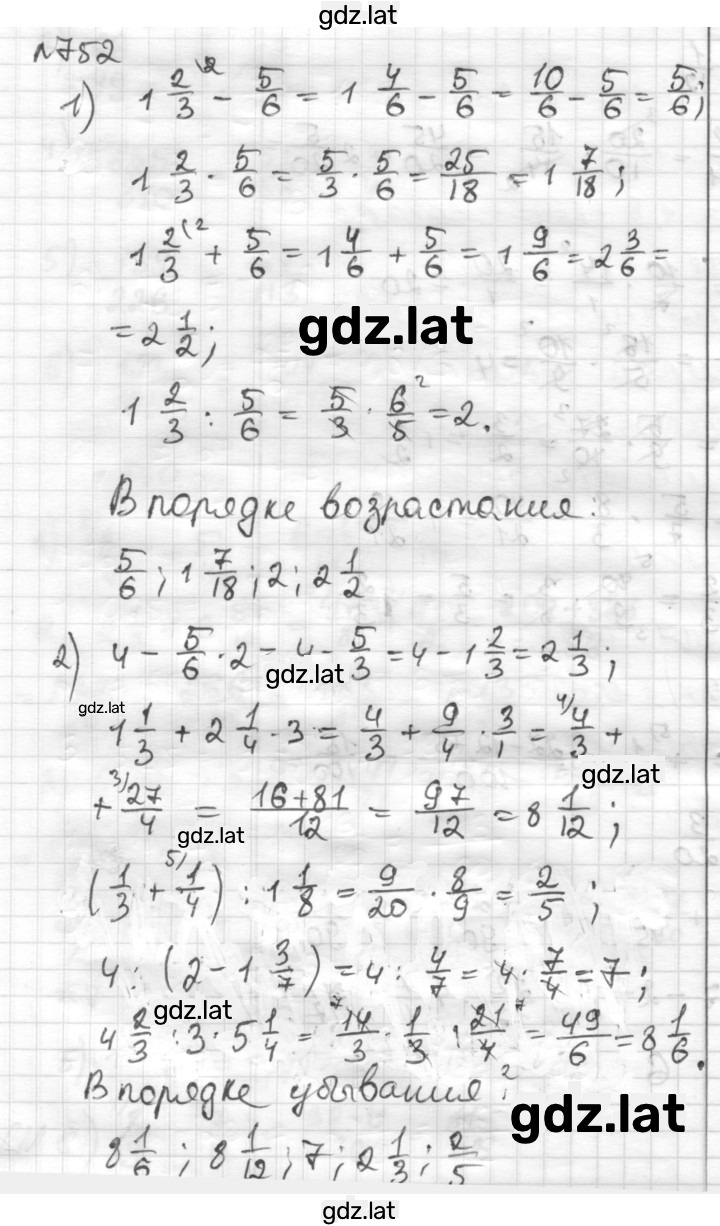 gdz.lat
№752
1) 1 2/3 \2 - 5/6 = 1 4/6 - 5/6 = 10/6 - 5/6 = 5/6;
1 2/3 · 5/6 = 5/3 · 5/6 = 25/18 = 1 7/18;
1 2/3 (2 + 5/6 = 1 4/6 + 5/6 = 1 9/6 = 2 3/6 =
= 2 1/2;
gdz.lat
1 2/3 : 5/6 = 5/3 · 6/5 2 = 2.
В порядке возрастания:
5/6; 1 7/18; 2; 2 1/2
2) 4 - 5/6 · 2 - 4 - 5/3 = 4 - 1 2/3 = 2 1/3;
gdz.lat
gdz.lat
1 1/3 + 2 1/4 · 3 = 4/3 + 9/4 · 3/1 = 4) 4/3 +
gdz.lat
+ 3) 27/4 = 16+81/12 = 97/12 = 8 1/12;
gdz.lat
(1/3 + 5) 1/4) : 1 1/8 = 9/20 · 8/9 = 2/5;
4 : (2 - 1 3/7) = 4 : 4/7 = 4 · 7/4 = 7;
gdz.lat
4 2/3 : 3 · 5 1/4 = 7 14/3 · 1/3 · 21/4 7 2 = 49/6 = 8 1/6.
В порядке убывания:
gdz.lat
8 1/6; 8 1/12; 7; 2 1/3; 2/5
gdz.lat